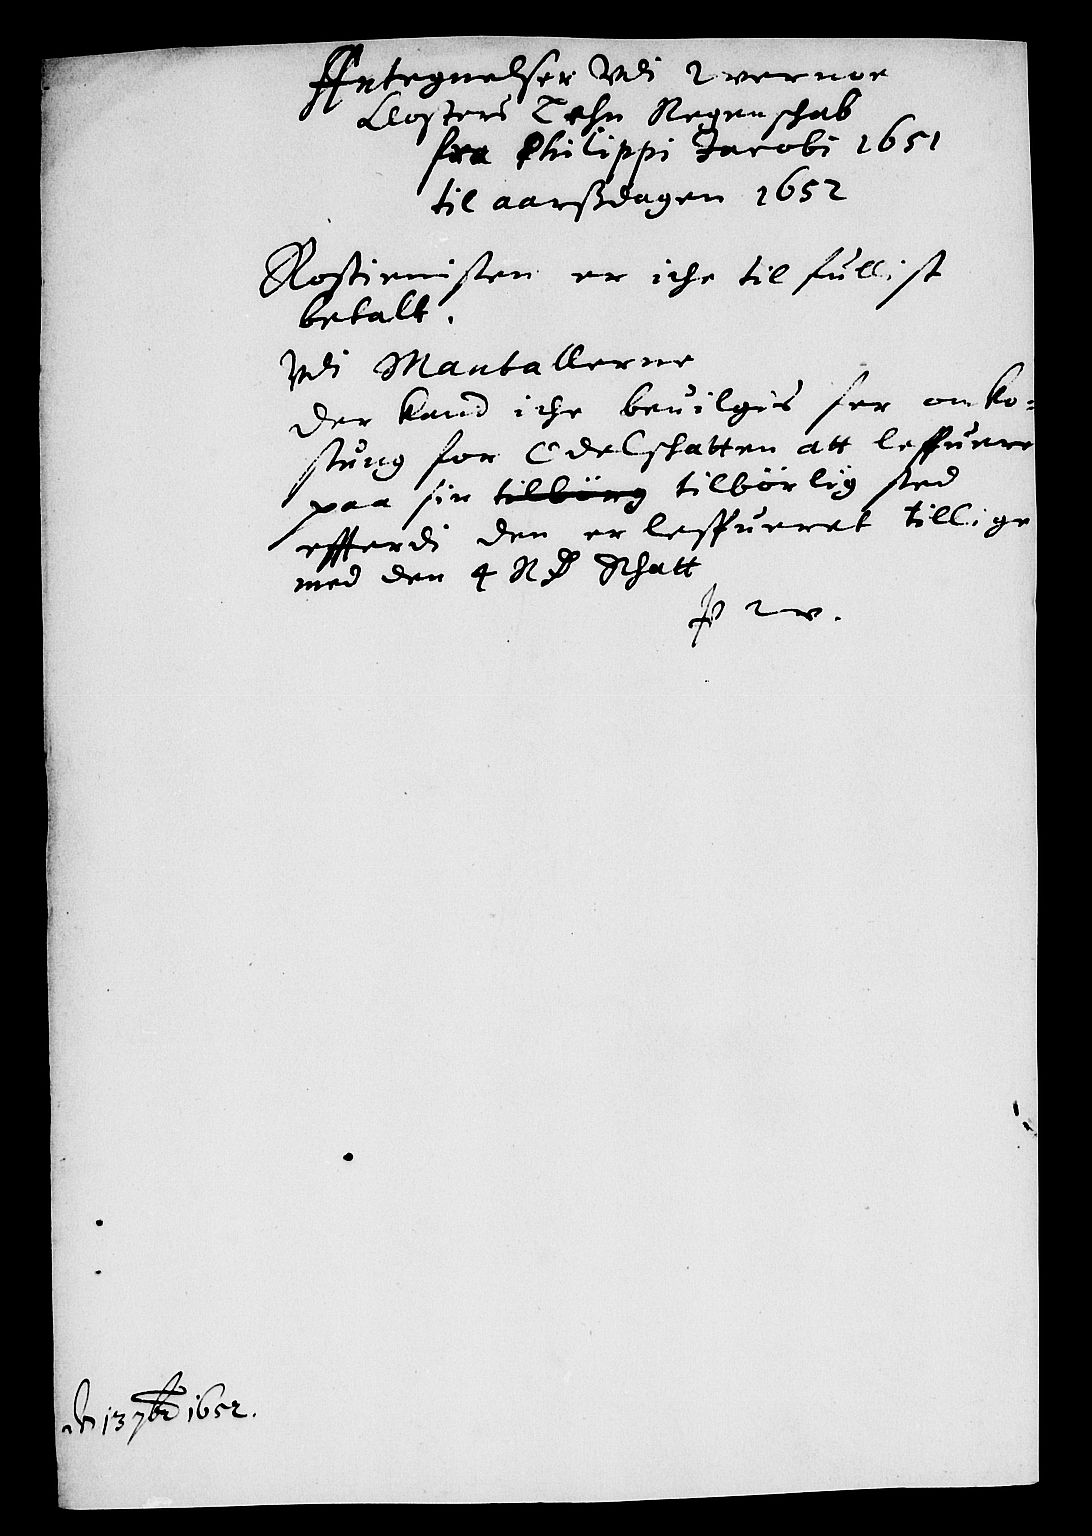 Antegnelser Vdi Vernøe
Closters Lehn Regenschab
fra Philippi Jacobi 1651
til aarßdagen 1652
Rostienisten er iche til fullist
betalt.
Vdi Mantallerne
Der kand iche beuilgis for omko-
stung for Odelschatten att leffuere
paa sin tilbörg tilbörlig sted
effterdi den er leffueret tillige
med den 4 RD Schatt
den 13 7br 1652.